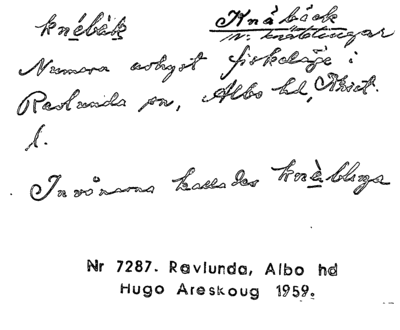 knèbàk Knäbäck
N: knäblingar
Numera avhyst fiskeläge i
Ravlunda sn, Albo hd, Krist.
l.
Invånarna kallades knèblinga
Nr 7287. Ravlunda, Albo hd
Hugo Areskoug 1959.